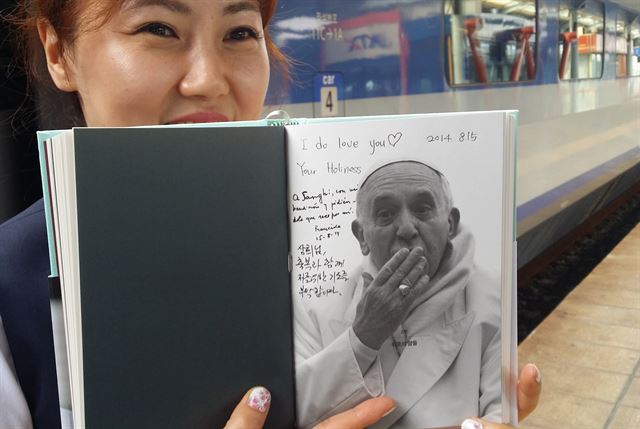 I do love you♡ 2014. 8.15
Your Holiness
A Sanghi, con mi
bendición y pidién-
dole que rece por mí.
Francisco
15-8-14
상희님,
축복과 함께
저를 위한 기도를
부탁합니다.
car
4